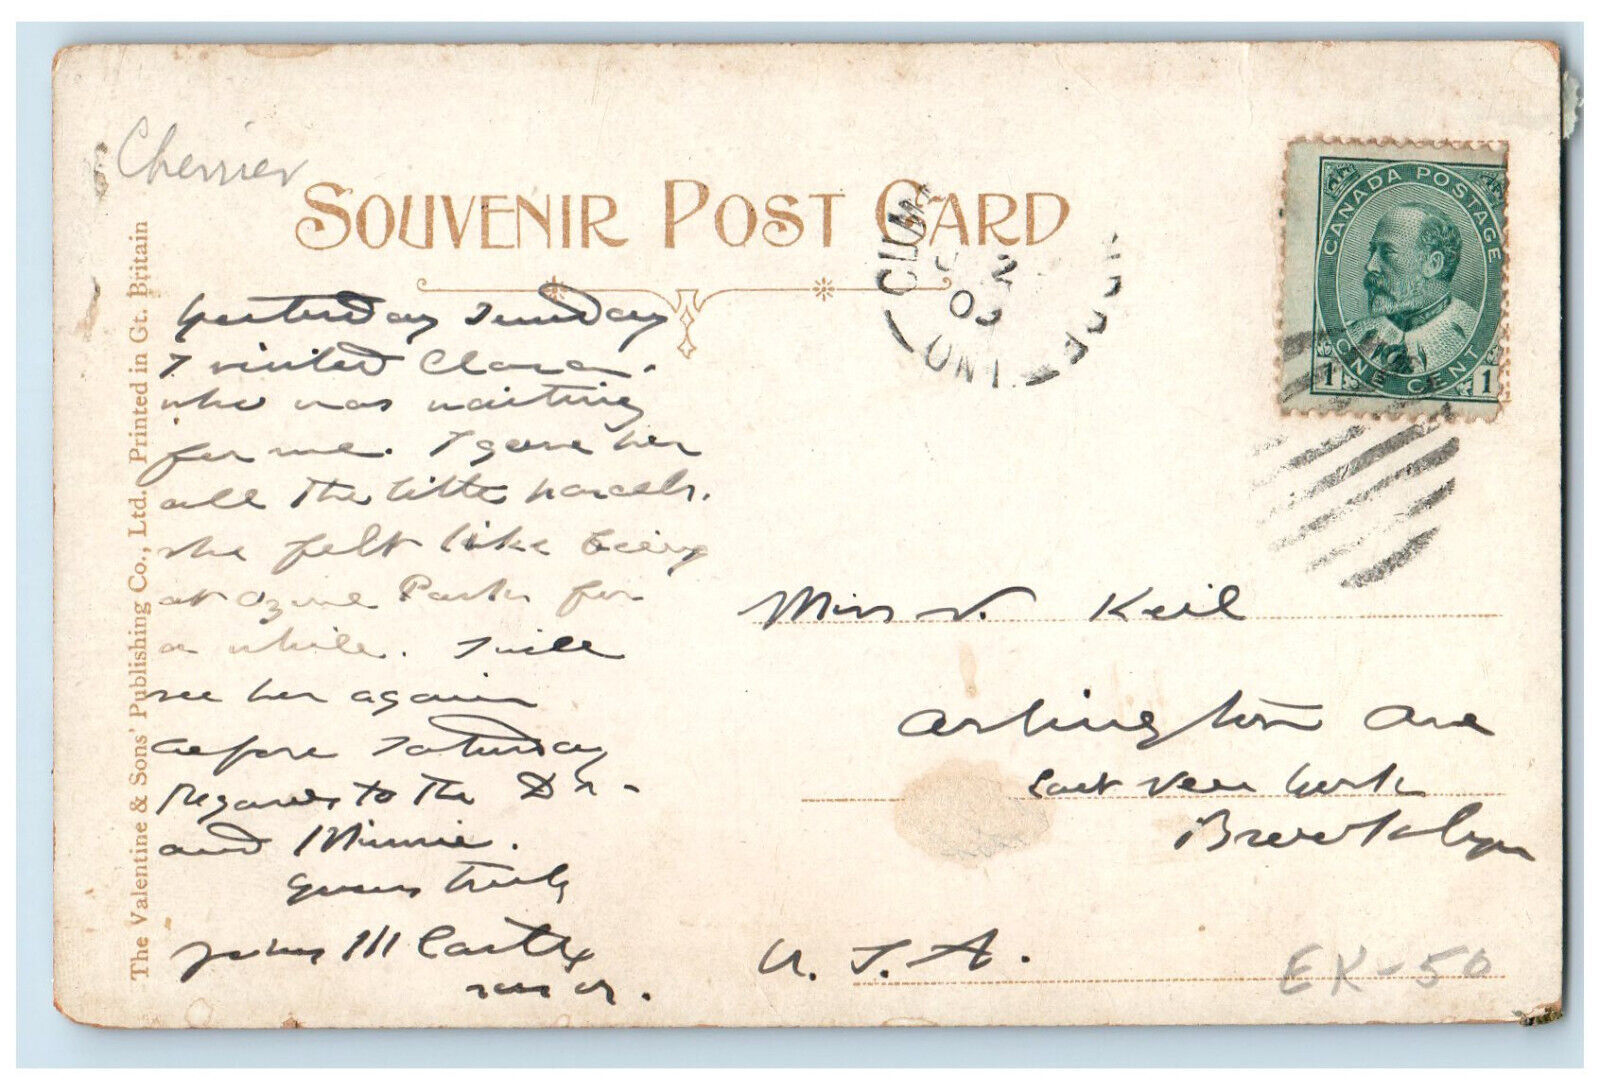 Cherrier
SOUVENIR POST CARD
The Valentine & Sons' Publishing Co., Ltd. Printed in Gt. Britain
CANADA POSTAGE
ONE CENT
1 1
ONT
Yesterday Sunday
I visited Clara.
who was waiting
for me. I gave her
all the little parcels.
she felt like being
at Ozone Park for
a while. I will
see her again
before Saturday
Regards to the Dr.
and Minnie.
yours truly
John McCarthy
Miss V. Keil
Arlington Ave
East New York
Brooklyn
U.S.A.
EK-50